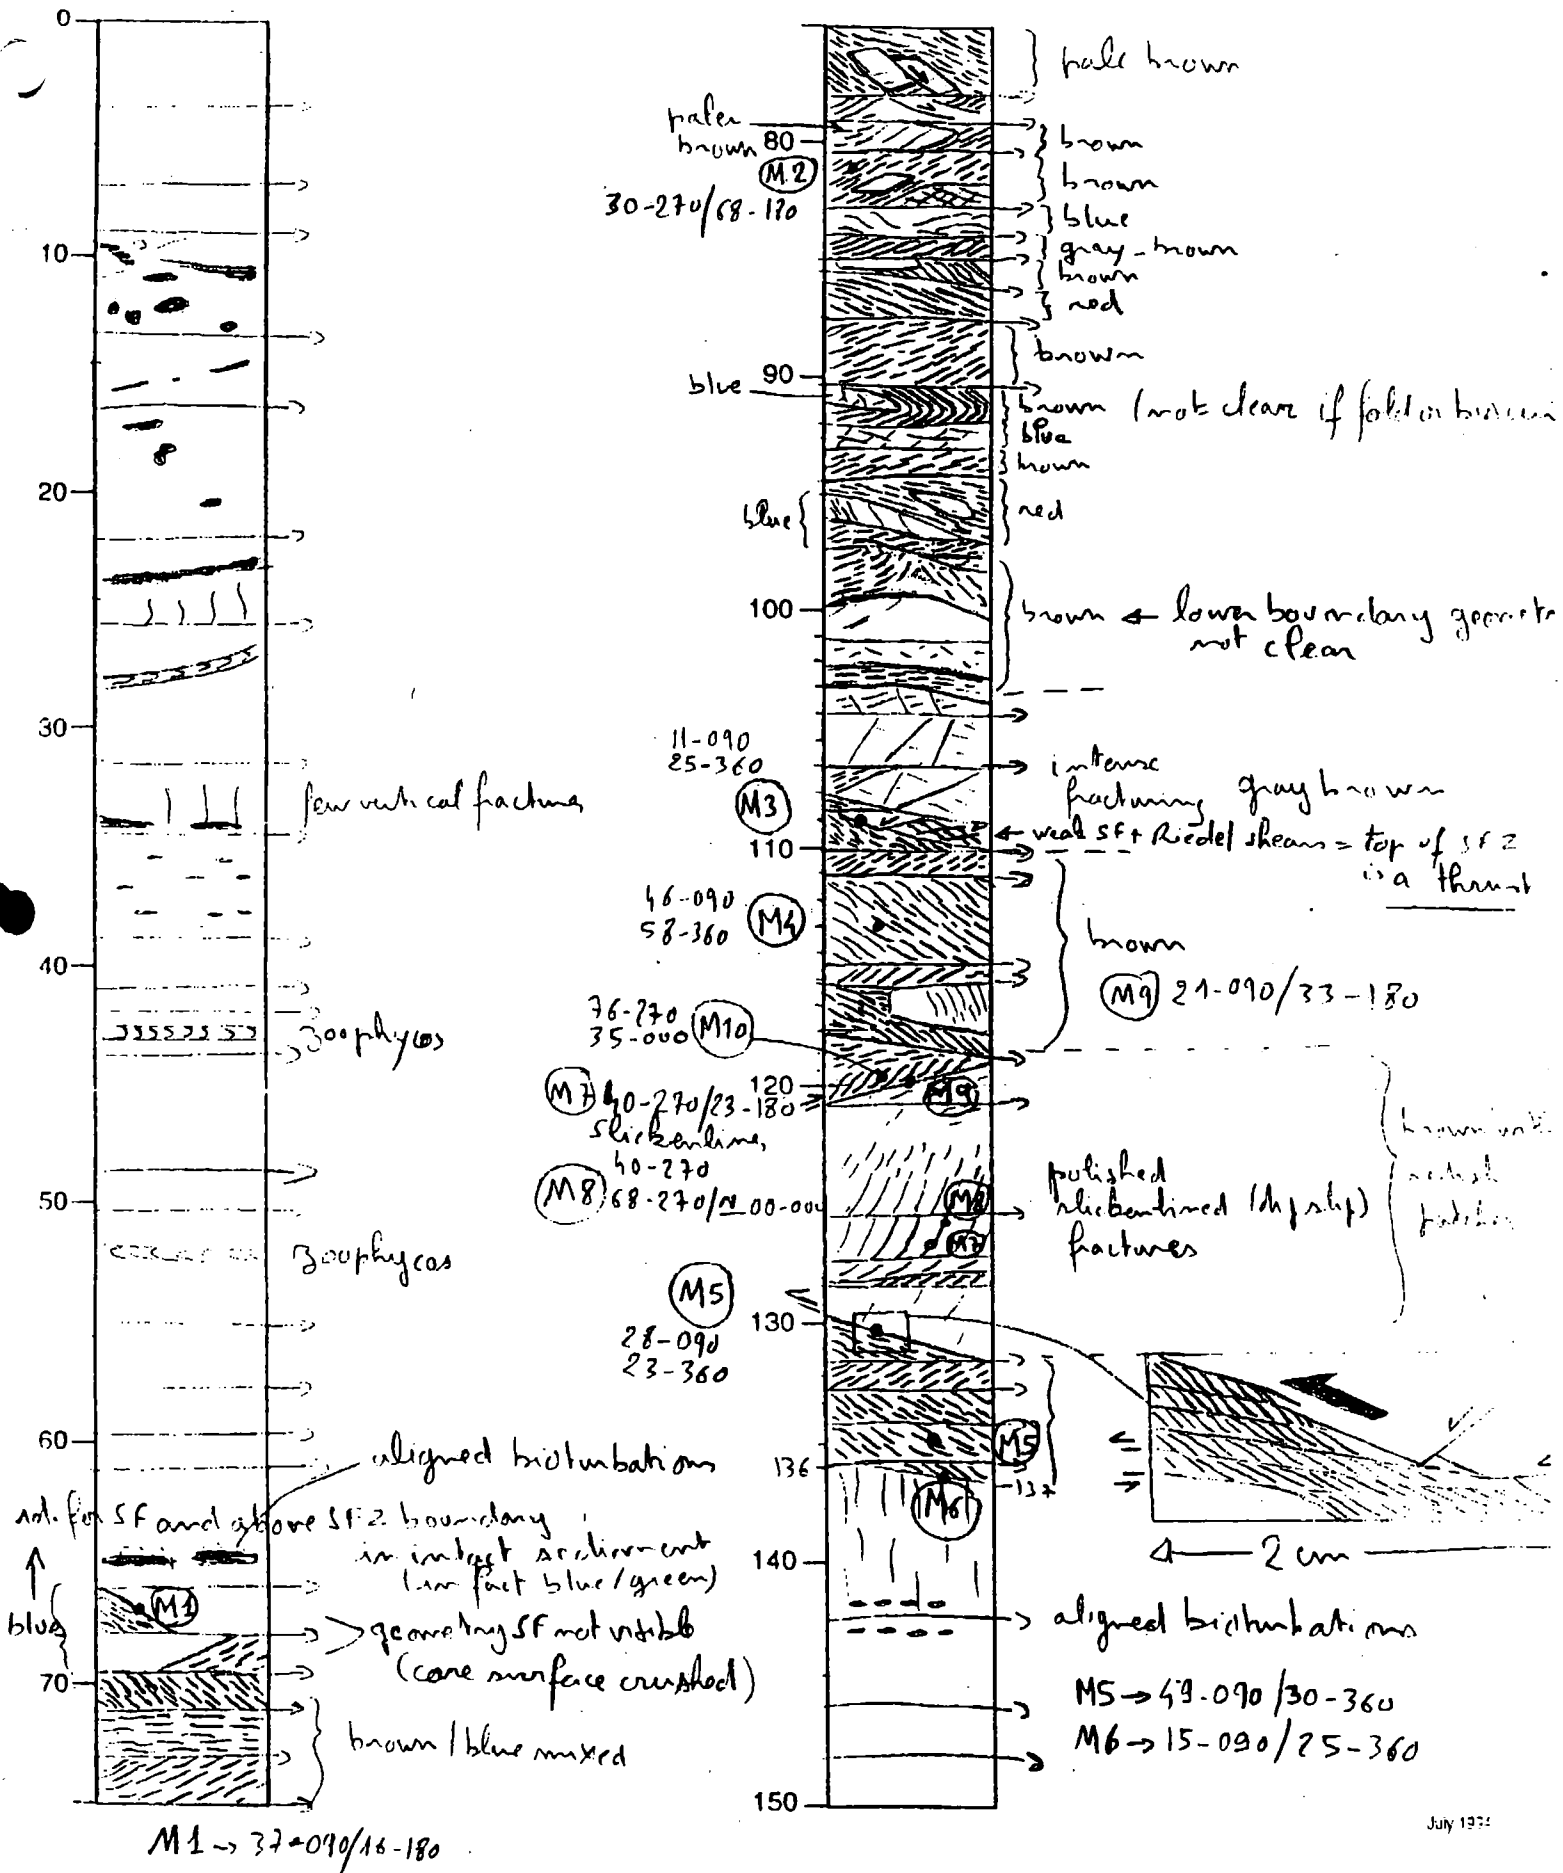 0
10
20
30
few vertical fractures
40
Zoophycos
50
Zoophycos
60
aligned bioturbations
SF and above SF2 boundary
in intact sediment
(in fact blue/green)
M1
blue
geometry SF not visible
(core surface crushed)
70
brown/blue mixed
M1 → 37-090/16-180
pale brown
paler
brown
80
brown
M2
brown
30-270/68-180
blue
gray-brown
brown
red
brown
90
blue
brown (not clear if fold or
blue
brown
blue
red
100
brown ← lower boundary
not clear
11-090
25-360
intense
fracturing
gray brown
M3
← weak SF + Riedel shears = top of SF2
is a thrust
110
46-090
58-360
M4
brown
M9 21-090/33-180
76-270
35-000
M10
120
M9
M7 40-270/23-180
Slickenlines
40-270
M8 68-270/N 00-000
polished
slickenlined (dip slip)
fractures
M8
M7
brown with
patches
M5
28-090
23-360
130
M5
136
137
M6
2 cm
140
aligned bioturbations
M5 → 49-090/30-360
M6 → 15-090/25-360
150